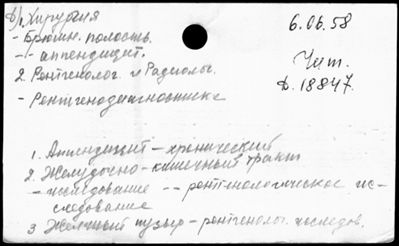 в) Хирургия
- Брюшн. полость.
- - аппендицит.
2. Рентгенолог. и Радиолог.
- Рентгенодиагностика
6.06.58
Чит.
Д. 18847.
1. Аппендицит - хронический
2. Желудочно-кишечный тракт
- исследование -- рентгенологическое ис-
следование
3 Желчный пузырь - рентгенолог. исследов.